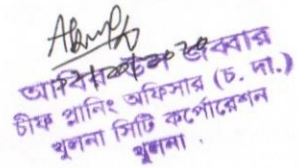 আবির উল জব্বার
চীফ প্লানিং অফিসার (চ. দা.)
খুলনা সিটি কর্পোরেশন
খুলনা.